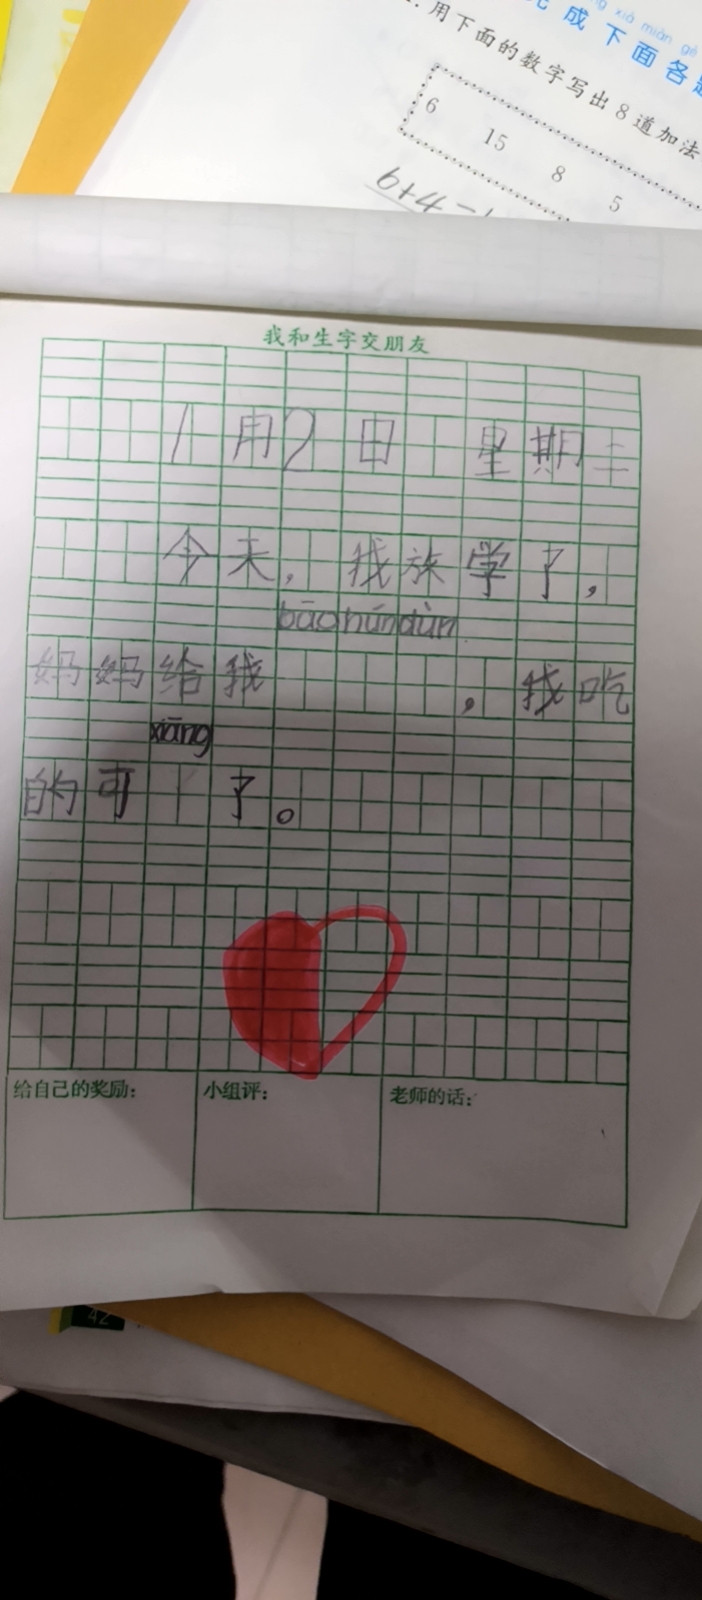 ng xià miàn gè
完成下面各题
1. 用下面的数字写出8道加法
6 15 8 5
6+4=1
我和生字交朋友
1月2日 星期三
今天，我放学了，
bāo hún dùn
妈妈给我，我吃
xiāng
的可 了。
给自己的奖励： 小组评： 老师的话：
42